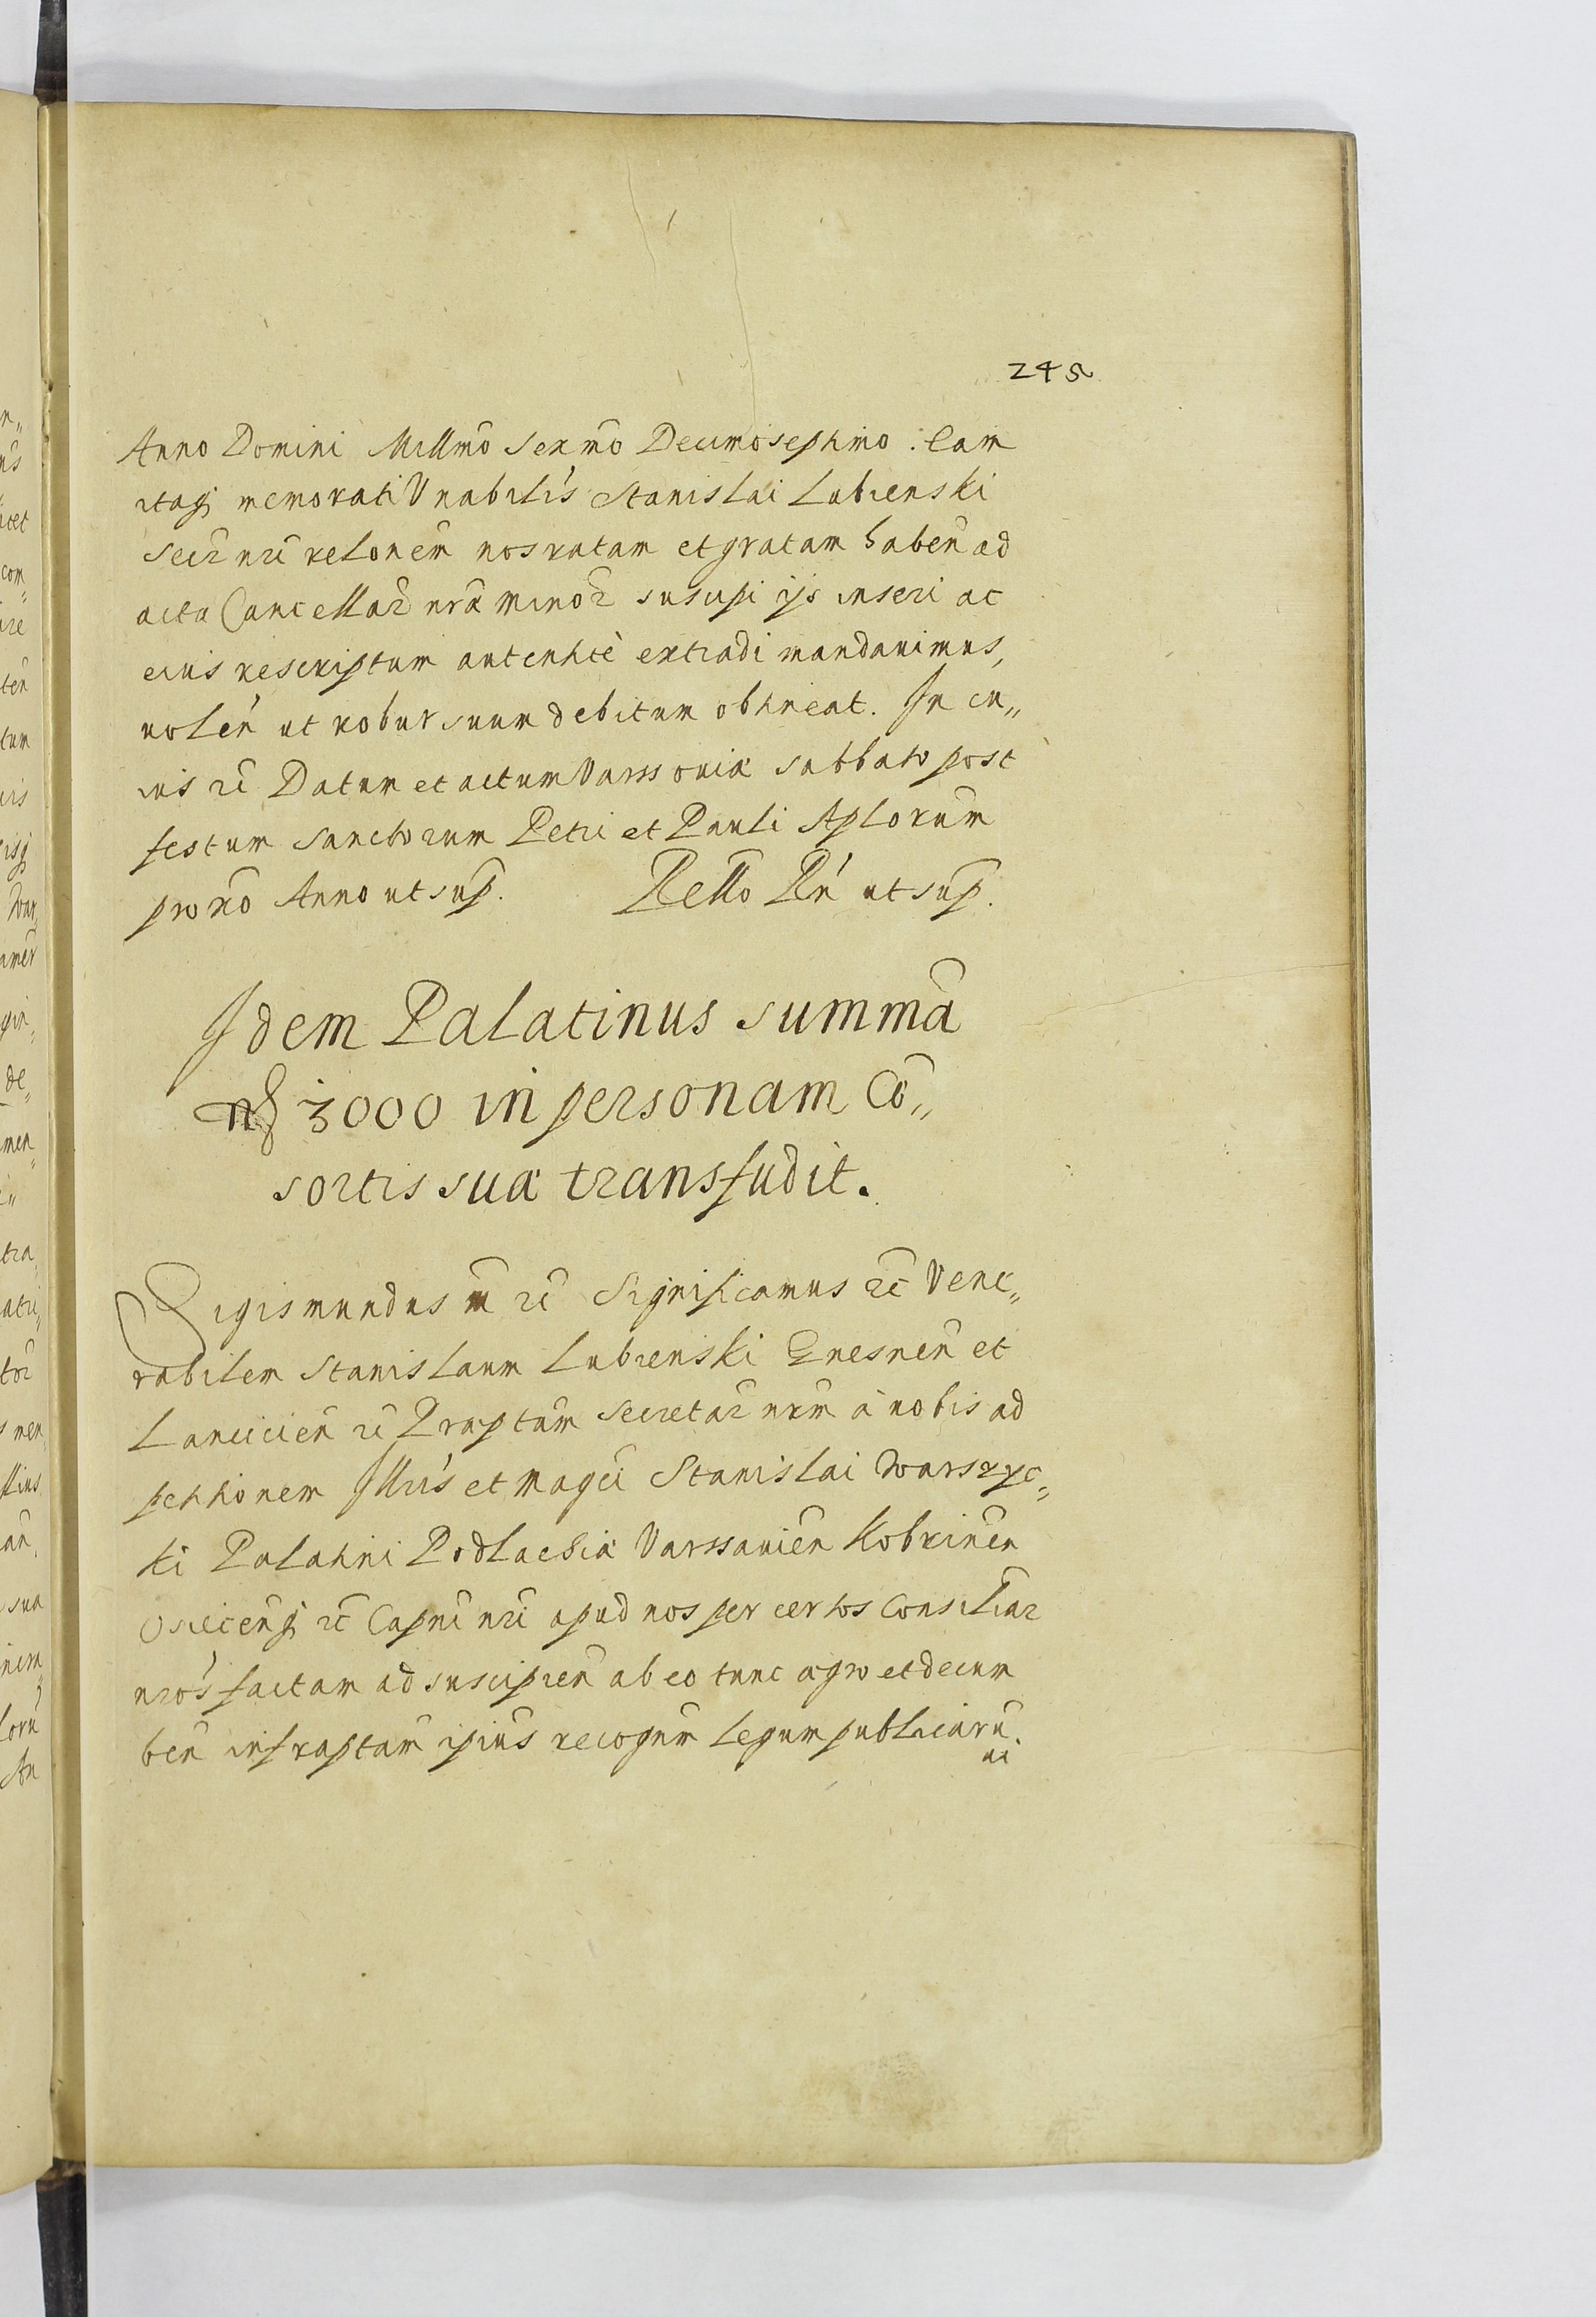 245
Anno Domini Millmo Sexmo Decimoseptimo. Eam
itaq memorati Vnabilis Stanislai Lubienski
Secr nri relonem nos ratam et gratam haben ad
acta Cancellar nra minor suscipi ijs inseri ac
eius rescriptum autentice extradi mandauimus,
uolen ut robur suum debitum obtineat. In cu„
ius rei Datum et actum Varssouia sabbato post
festum Sanctorum Petri et Pauli Aplorum
proxo Anno ut sup. Rello Pn ut sup.
Idem Palatinus summa
3000 in personam Co„
sortis sua transfudit.
Sigismundus rc Significamus rc Vene„
rabilem Stanislaum Lubienski Gnesnen et
Lancicien rc Praptum Secretar nrm à nobis ad
petitionem Illris et Magci Stanislai Warszyc„
ki Palatini Podlachia Varssauien Kobrinen
Osiecenq rc Capnei nri apud nos per certos Consiliar
nros factam ad suscipien ab eo tunc agro et decum
ben infraptam ipius recognm legum publicaru.
ui